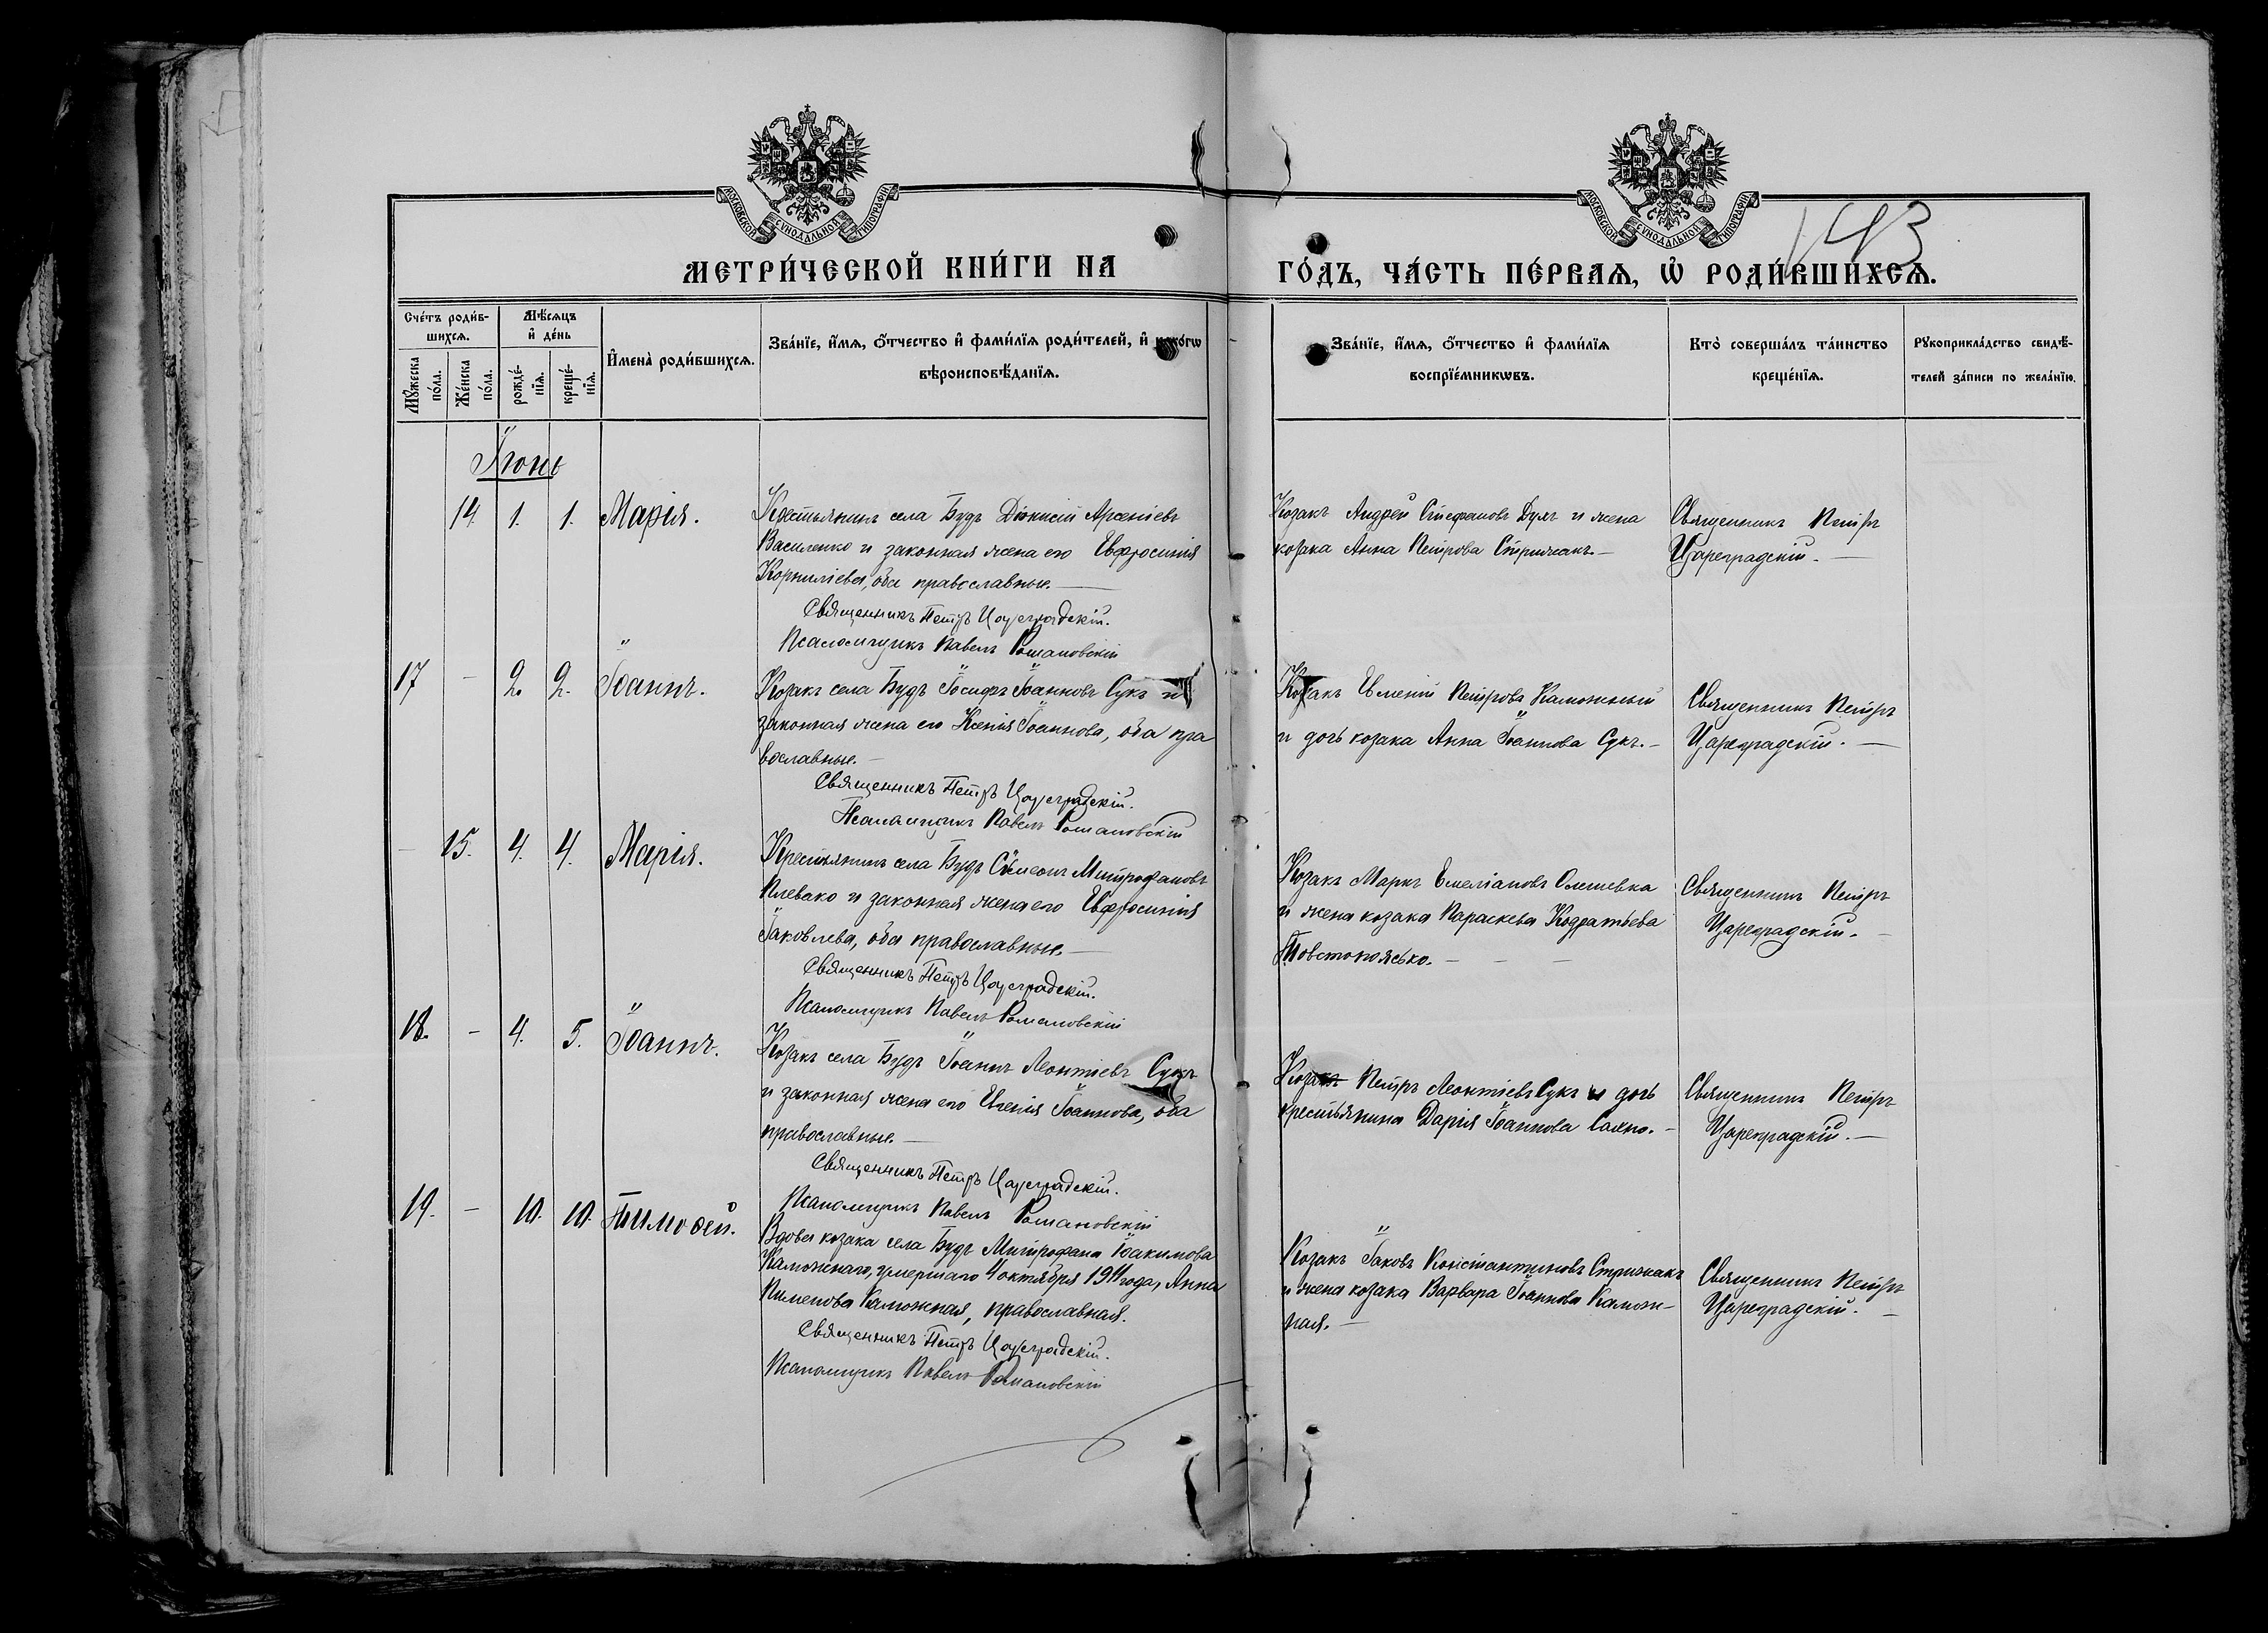 МОСКОВСКОЙ СѴНОДАЛЬНОЙ ТИПОГРАФІИ
МОСКОВСКОЙ СѴНОДАЛЬНОЙ ТИПОГРАФІИ
143
МЕТРИ́ЧЕСКОЙ КНИ́ГИ НА
ГО́ДЪ, ЧА́СТЬ ПЕ́РВАѦ, Ѡ҆ РОДИ́ВШИХСѦ.
Сче́тъ роди́в-
шихсѧ.
Мѣ́сѧцъ
и҆ де́нь
Мꙋ́жеска
по́ла.
Же́нска
по́ла.
рожде́-
нїѧ.
креще́-
нїѧ.
И҆мена̀ роди́вшихсѧ.
Зва́нїе, и҆́мѧ, ѻ҆́тчество и҆ фами́лїѧ роди́телей, и҆ како́гѡ
вѣроисповѣ́данїѧ.
Зва́нїе, и҆́мѧ, ѻ҆́тчество и҆ фами́лїѧ
воспрїе́мникѡвъ.
Кто̀ соверша́лъ та́инство
креще́нїѧ.
Рꙋкоприкла́дство свидѣ́-
телей за́писи по жела́нїю.
Іюнь
14 1. 1. Марія.
Крестьянинъ села Будъ Діонисій Арсеніевъ
Василенко и законная жена его Евфросинія
Корниліева, оба православные.—
Священникъ Петръ Цареградскій.
Псаломщикъ Павелъ Романовскій
Козакъ Андрей Стефановъ Дуля и жена
козака Анна Петрова Стрижакъ.—
Священникъ Петръ
Цареградскій.—
17 - 2. 2. Іоаннъ.
Козакъ села Будъ Іосифъ Іоанновъ Сукъ и
законная жена его Ксенія Іоаннова, оба пра
вославные.—
Священникъ Петръ Цареградскій.
Псаломщикъ Павелъ Романовскій
Козакъ Евменій Петровъ Каможный
и дочь козака Анна Іоаннова Сукъ.—
Священникъ Петръ
Цареградскій.—
- 15. 4. 4. Марія.
Крестьянинъ села Будъ Сѵмеонъ Митрофановъ
Плевако и законная жена его Евфросинія
Іаковлева, оба православные.—
Священникъ Петръ Цареградскій.
Псаломщикъ Павелъ Романовскій
Козакъ Маркъ Емеліановъ Олешевка
и жена козака Параскева Кодратьева
Товстопясько.— — —
Священникъ Петръ
Цареградскій.—
18. - 4. 5. Іоаннъ.
Козакъ села Будъ Іоаннъ Леонтіевъ Сукъ
и законная жена его Евгенія Іоаннова, оба
православные.—
Священникъ Петръ Цареградскій.
Псаломщикъ Павелъ Романовскій
Козакъ Петръ Леонтіевъ Сукъ и дочь
крестьянина Дарія Іоаннова Сахно.—
Священникъ Петръ
Цареградскій.—
19. - 10. 10. Тимоѳей.
Вдова козака села Будъ Митрофана Іоакимова
Каможнаго, умершаго 4 октября 1911 года, Анна
Пименова Каможная, православная.
Священникъ Петръ Цареградскій.
Псаломщикъ Павелъ Романовскій
Козакъ Іаковъ Константиновъ Стрижакъ
и жена козака Варвара Іоаннова Камож-
ная.—
Священникъ Петръ
Цареградскій.—